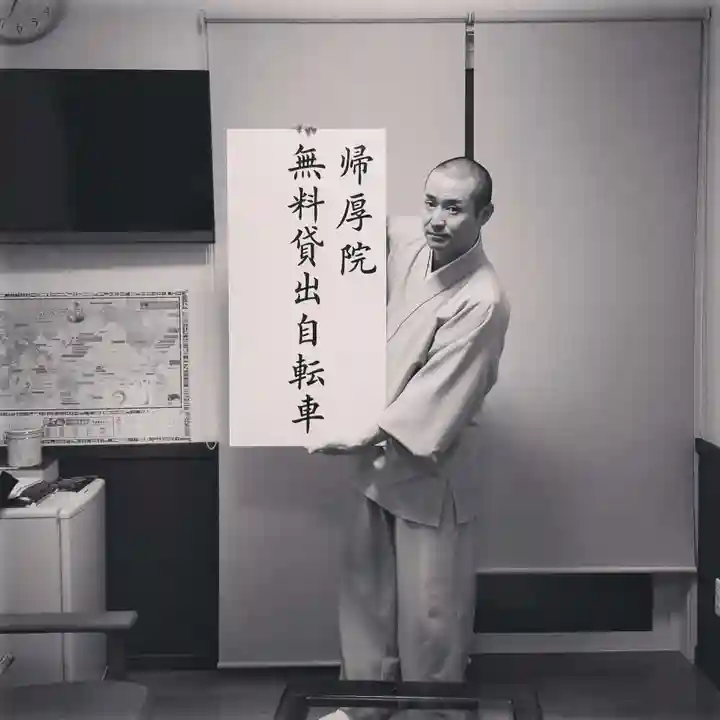 帰厚院
無料貸出自転車